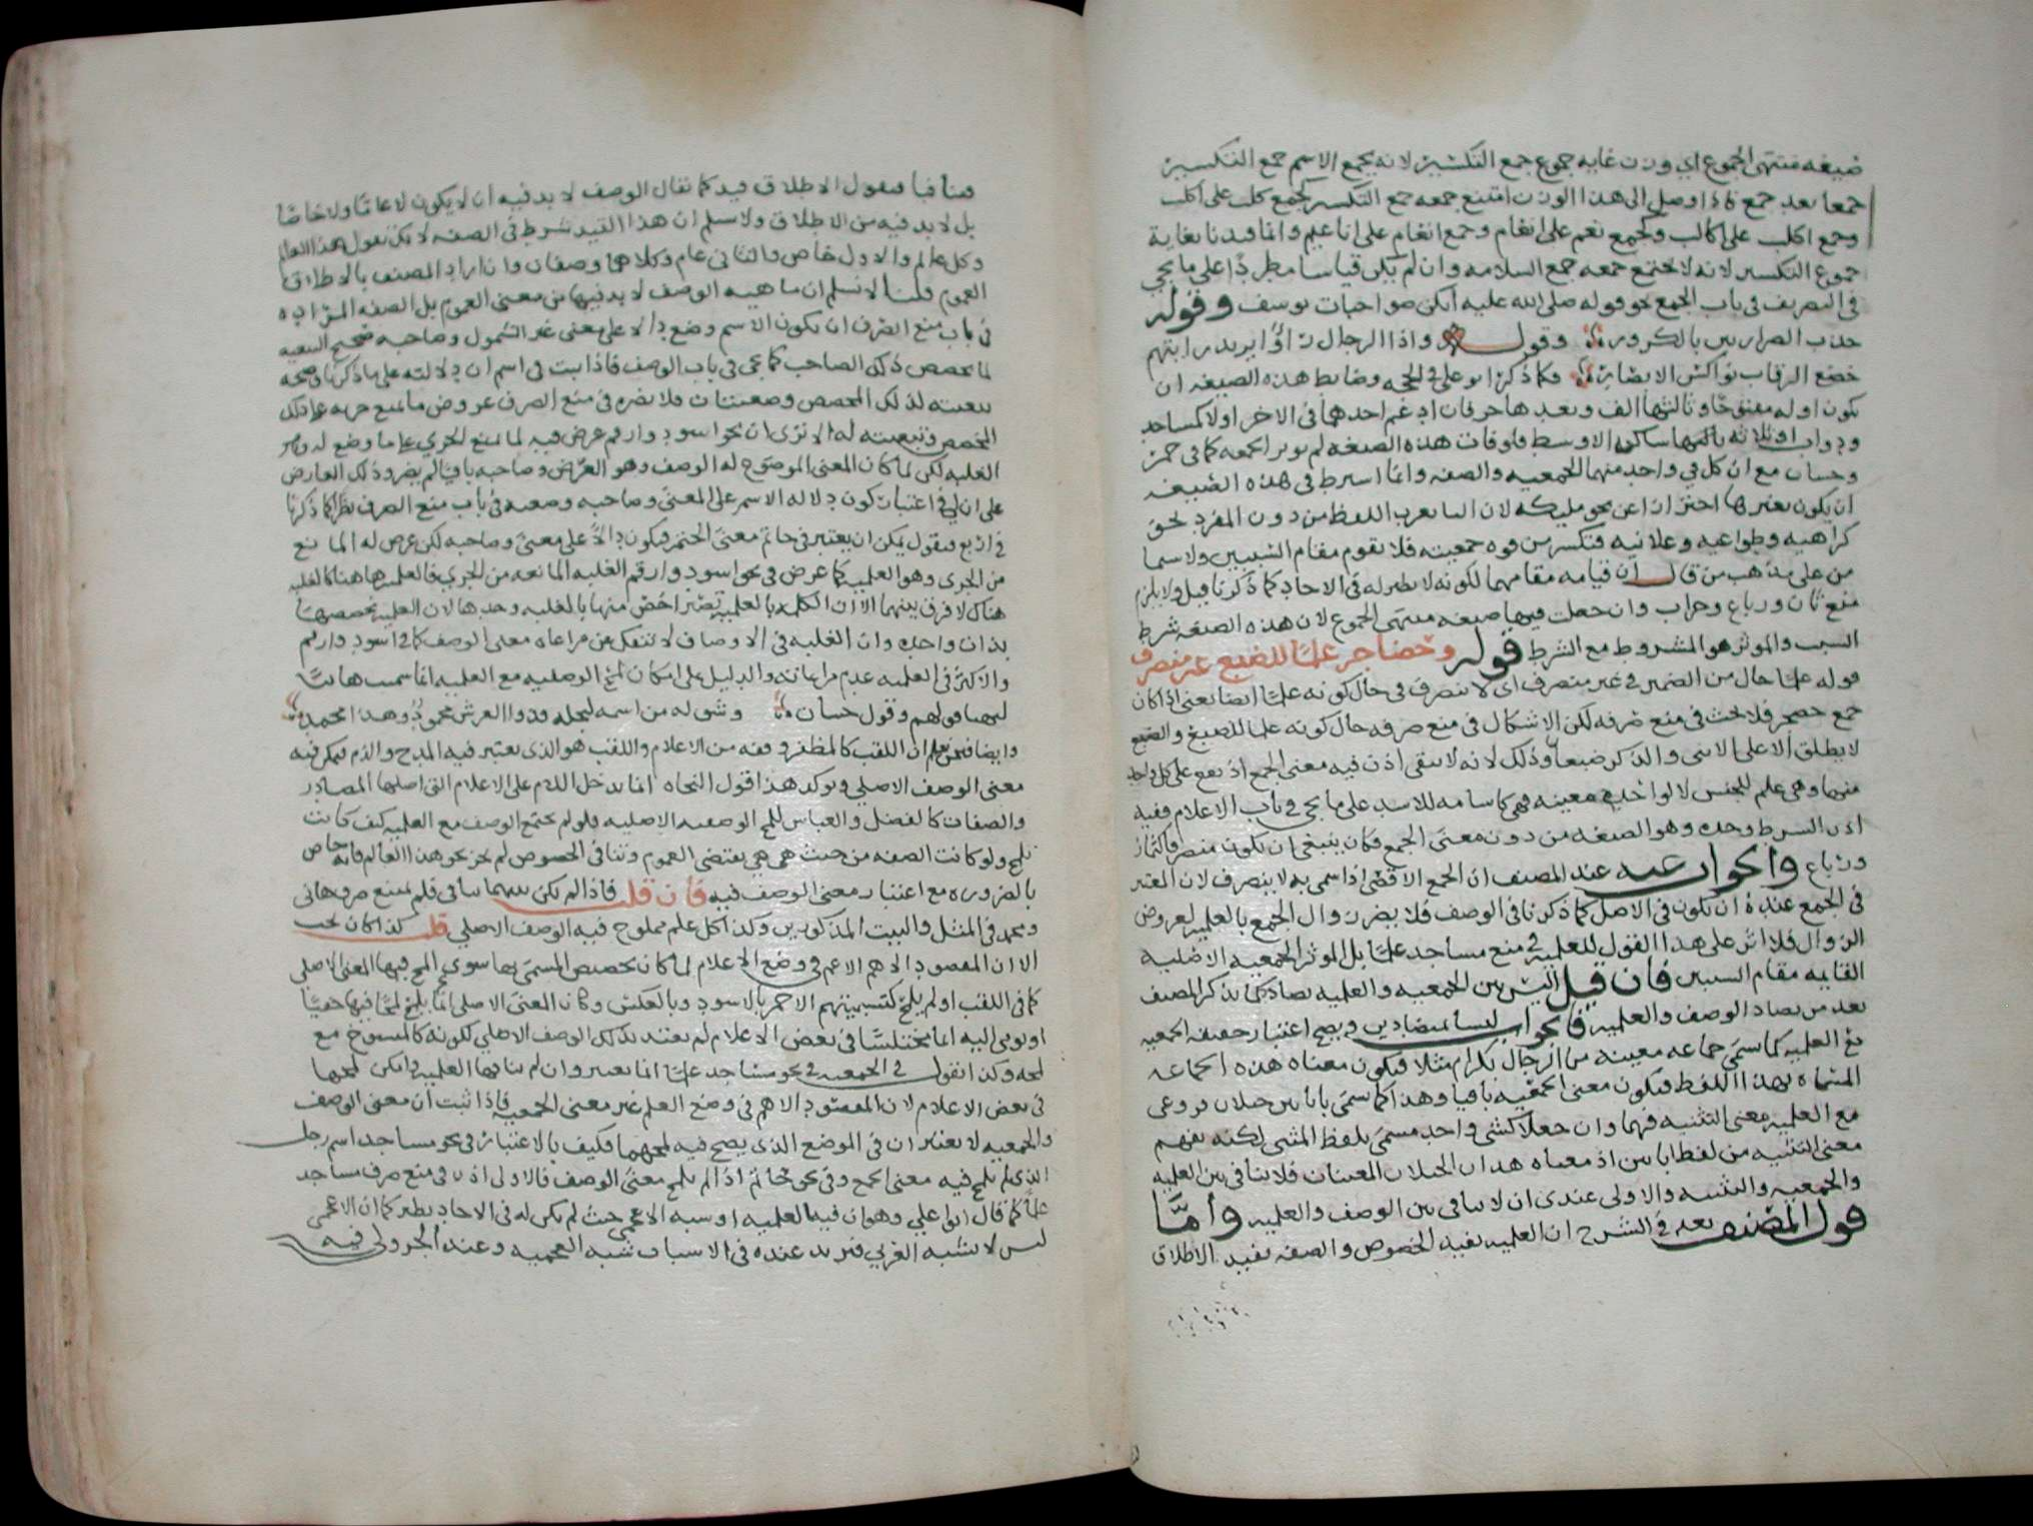 صيغه منتهى الجموع اي وزن غايه جموع جمع التكسير لانه يجمع الاسم جمع التكسير
جمعا بعد جمع فاذا وصل الى هذا الوزن امتنع جمعه جمع التكسير كجمع كلب على اكلب
وجمع اكلب على اكالب وكجمع نعم على انعام وجمع انعام على اناعيم وانما قيدنا بغاية
جموع التكسير لانه لا يمتنع جمعه جمع السلامه وان لم يكن قياسا مطردًا على ما يجي
في التصريف في باب الجمع نحو قوله صلى الله عليه انكن صواحبات يوسف وقوله
جذب الصراريين بالكرور وقوله واذا الرجال رأوا يزيد رايتهم
خضع الرقاب نواكسي الابصار فيما ذكر ابو علي في الحجه وضابط هذه الصيغه ان
يكون اوله مفتوحًا وثالثها الف وبعدها حرفان ادغم احدهما في الاخر او لا كمساجد
ودواب او ثلاثه ثالثها ساكن الاوسط فلو فات هذه الصيغه لم يوثر الجمعه كما في حمر
وحسان مع ان كل في واحد منهما الجمعيه والصفه وانما اشترط في هذه الصيغه
ان يكون بغير ها احترازا عن نحو مليكه لان التا تقرب اللفظ من وزن المفرد نحو
كراهيه وطواعيه وعلانيه فتكسر من قوه جمعيته فلا يقوم مقام السببين ولا سيما
من على مذهب من قال ان قيامه مقامهما لكونه لا نظير له في الاحاد كما ذكرنا قبل ولا يلزم
منع ثمان ورباع وحزاب وان جعلت فيها صيغه منتهى الجموع لان هذه الصيغه شرط
السبب والموثر هو المشروط مع الشرط قوله وحضاجر علمًا للضبع غير منصرف
قوله علمًا حال من الضمير في غير منصرف اي لا ينصرف في حال كونه علمًا ايضا يعني اذا كان
جمع حضجر فلا بحث في منع صرفه لكن الاشكال في منع صرفه حال كونه علما للضبع والضبع
لا يطلق الا على الانثى والذكر ضبعان وذلك لانه لا يبقى اذن فيه معنى الجمع اذ يقع على كل واحد
منهما وهي علم للجنس لا لواحد معينه فهي كاسامه للاسد على ما يجي في باب الاعلام ففيه
اذن الشرط وحده وهو الصيغه من دون معنى الجمع فكان ينبغي ان يكون منصرفا كثمان
ورباع والجواب عنه عند المصنف ان الجمع الاقصى اذا سمي به لا ينصرف لان المعتبر
في الجمع عنده ان يكون في الاصل كما ذكرنا في الوصف فلا يضر زوال الجمع بالعلميه لعروض
الزوال فلا اثر على هذا القول للعلميه في منع مساجد علمًا بل الموثر الجمعيه الاصليه
القايمه مقام السببين فان قيل اليس بين الجمعيه والعلميه تضاد كما يذكر المصنف
بعد من تضاد الوصف والعلميه فالجواب ليسا بمتضادين ويصح اعتبار حقيقه الجمعيه
مع العلميه كما سمي جماعه معينه من الرجال بكرام مثلا فيكون معناه هذه الجماعه
المسماه بهذا اللفظ فيكون معنى الجمعيه باقيا وهذا كما سمي بابانين جبلان فروعي
مع العلميه معنى التثنيه فيهما وان جعلا كشي واحد مسمى بلفظ المثنى لكنه يفهم
معنى التثنيه من لفظ ابانين اذ معناه هذان الجبلان المعينان فلا تنافي بين العلميه
والجمعيه والتثنيه والاولى عندي ان لا تنافي بين الوصف والعلميه وأمّا
قول المصنف بعد في الشرح ان العلميه تفيد الخصوص والصفه تفيد الاطلاق
فتنافيا فنقول الاطلاق قيد كما تقال الوصف لا بد فيه ان لا يكون لا عامًا ولا خاصًا
بل لا بد فيه من الاطلاق ولا نسلم ان هذا القيد شرط في الصفه لانك تقول هذا العالم
وكل عالم والاول خاص والثاني عام وكلاهما وصفان وان اراد المصنف بالاطلاق
العموم قلنا لا نسلم ان ماهيه الوصف لا بد فيها من معنى العموم بل الصفه المراده
في باب منع الصرف ان يكون الاسم وضع دالا على معنى غير الشمول وصاحبه صحيح التبعيه
لما يخصص ذلك الصاحب كما يجي في باب الوصف فاذا ثبت في اسم ان دلالته على ما ذكرنا وصحه
تبعيته لذلك المخصص وضعيتان فلا يضره في منع الصرف عروض ما يمنع جريه على ذلك
المخصص وتبعيته له الا ترى ان نحو اسود وارقم عرض فيه لما يمنع الجري على ما وضع له وهو
الغلبه لكن لما كان المعنى الموضوع له الوصف وهو العرض وصاحبه باقيا لم يضر ذلك العارض
على ان لي في اعتبار كون دلاله الاسم على المعنى وصاحبه وضعيه في باب منع الصرف نظرا كما ذكرنا
في اربع فنقول يمكن ان يعتبر في حاتم معنى الحتم فيكون دالًا على معنى وصاحبه لكن عرض له المانع
من الجري وهو العلميه كما عرض في نحو اسود وارقم الغلبه المانعه من الجري فالعلميه هاهنا كالغلبه
هناك لا فرق بينهما الا ان الكلمه بالعلميه تصير اخص منها بالغلبه وحدها لان العلميه تخصصها
بذات واحده وان الغلبه في الاوصاف لا تنفك عن مراعاه معنى الوصف كما في اسود وارقم
والاكثر في العلميه عدم مراعاته والدليل على امكان لمح الوصفيه مع العلميه انما سميت هانئًا
لتهنا قولهم وقول حسان وشق له من اسمه ليجله فذو العرش محمودٌ وهذا محمد
وايضا فنحن نعلم ان اللقب كالمظفر وقفه من الاعلام واللقب هو الذي يعتبر فيه المدح والذم فيمكن فيه
معنى الوصف الاصلي ويوكد هذا قول النحاه انما تدخل اللام على الاعلام التي اصلها المصادر
والصفات كالفضل والعباس للمح الوصفيه الاصليه فلو لم يجتمع الوصف مع العلميه كيف كانت
تلمح ولو كانت الصفه من حيث هي هي تقتضي العموم وتنافي الخصوص لم يجز نحو هذا العالم فانه خاص
بالضروره مع اعتبار معنى الوصف فيه فان قلت فاذا لم يكن بينهما تنافي فلم لم يمنع صرف هاني
ومحمد في المثل والبيت المذكورين وكذا كل علم ملموح فيه الوصف الاصلي قلت كذا كان يجب
الا ان المقصود الاهم الاعم في وضع الاعلام لما كان تخصيص المسمى بها سوى لمح فيها المعنى الاصلي
كما في اللقب او لم يلمح كتسميتهم الاحمر بالاسود وبالعكس وكان المعنى الاصلي انما يلمح لمحًا فيها خفيًا
او يومي اليه ايما مختلسًا في بعض الاعلام لم يعتد بذلك الوصف الاصلي لكونه كالمنسوخ مع
لمحه وكذا نقول في الجمعيه في نحو مساجد علمًا انها تعتبر وان لم تنافها العلميه وامكن لمحها
في بعض الاعلام لان المقصود الاهم في وضع العلم غير معنى الجمعيه فاذا ثبت ان معنى الوصف
والجمعيه لا يعتبران في الموضع الذي يصح فيه لمحهما فكيف بالاعتبار في نحو مساجد اسم رجل
الذي لم يلمح فيه معنى الجمع وفي نحو حاتم اذا لم يلمح معنى الوصف فالاولى اذن في منع صرف مساجد
علمًا كما قال ابو علي وهو ان فيه العلميه او شبه الاعجمي حيث لم يكن له في الاحاد نظير كما ان الاعجمي
ليس لا يشبه العربي فنريد عنده في الاسباب شبه العجميه وعند الجزولي فيه